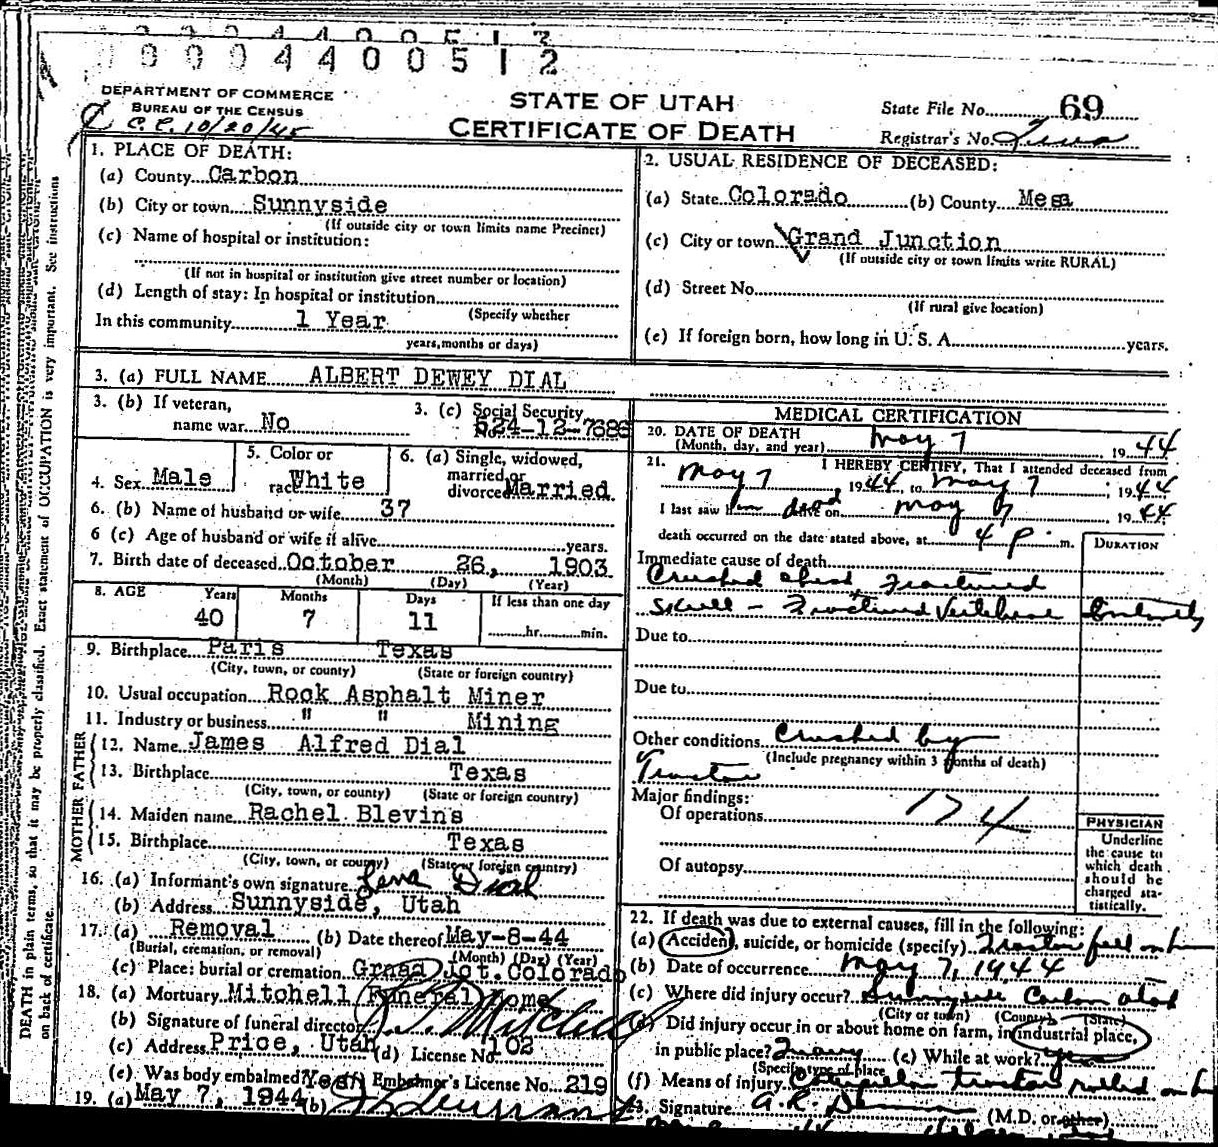 0004400512
DEPARTMENT OF COMMERCE
BUREAU OF THE CENSUS
C. C. 10/20/45
STATE OF UTAH
CERTIFICATE OF DEATH
State File No. 69
Registrar's No.
1. PLACE OF DEATH:
(a) County Carbon
(b) City or town Sunnyside
(If outside city or town limits name Precinct)
(c) Name of hospital or institution:
(If not in hospital or institution give street number or location)
(d) Length of stay: In hospital or institution
(Specify whether
In this community 1 Year
years, months or days)
2. USUAL RESIDENCE OF DECEASED:
(a) State Colorado (b) County Mesa
(c) City or town Grand Junction
(If outside city or town limits write RURAL)
(d) Street No.
(If rural give location)
(e) If foreign born, how long in U. S. A. years.
3. (a) FULL NAME ALBERT DEWEY DIAL
3. (b) If veteran,
name war No
3. (c) Social Security
No. 524-12-7686
4. Sex Male
5. Color or
race White
6. (a) Single, widowed,
married or
divorced Married
6. (b) Name of husband or wife 37
6 (c) Age of husband or wife if alive years.
7. Birth date of deceased October 26, 1903
(Month) (Day) (Year)
8. AGE Years Months Days If less than one day
40 7 11 hr. min.
9. Birthplace Paris Texas
(City, town, or county) (State or foreign country)
10. Usual occupation Rock Asphalt Miner
11. Industry or business " " Mining
FATHER
12. Name James Alfred Dial
13. Birthplace Texas
(City, town, or county) (State or foreign country)
MOTHER
14. Maiden name Rachel Blevins
15. Birthplace Texas
(City, town, or county) (State or foreign country)
16. (a) Informant's own signature Lena Dial
(b) Address Sunnyside, Utah
17. (a) Removal (b) Date thereof May-8-44
(Burial, cremation, or removal) (Month) (Day) (Year)
(c) Place: burial or cremation Grand Jct. Colorado
18. (a) Mortuary Mitchell Funeral Home
(b) Signature of funeral director Mitchell
(c) Address Price, Utah (d) License No. 102
(e) Was body embalmed? Yes (f) Embalmer's License No. 219
19. (a) May 7, 1944 (b)
MEDICAL CERTIFICATION
20. DATE OF DEATH
(Month, day, and year) May 7 1944
21. I HEREBY CERTIFY, That I attended deceased from
May 7, 1944, to May 7, 1944
I last saw him dead alive on May 7 1944
death occurred on the date stated above, at 4 P. m.
DURATION
Immediate cause of death
Crushed chest, Fractured
Skull - Fractured Vertebrae
Due to
Due to
Other conditions Crushed by
(Include pregnancy within 3 months of death)
Tractor
Major findings:
Of operations
174
Of autopsy
PHYSICIAN
Underline
the cause to
which death
should be
charged sta-
tistically.
22. If death was due to external causes, fill in the following:
(a) Accident, suicide, or homicide (specify) Tractor fell on him
(b) Date of occurrence May 7, 1944
(c) Where did injury occur? Sunnyside Carbon Utah
(City or town) (County) (State)
(d) Did injury occur in or about home on farm, in industrial place,
in public place? (e) While at work? yes
(Specify type of place
(f) Means of injury Caterpillar tractor rolled on
23. Signature A. R. (M.D. or other)
DEATH in plain terms, so that it may be properly classified. Exact statement of OCCUPATION is very important. See instructions
on back of certificate.